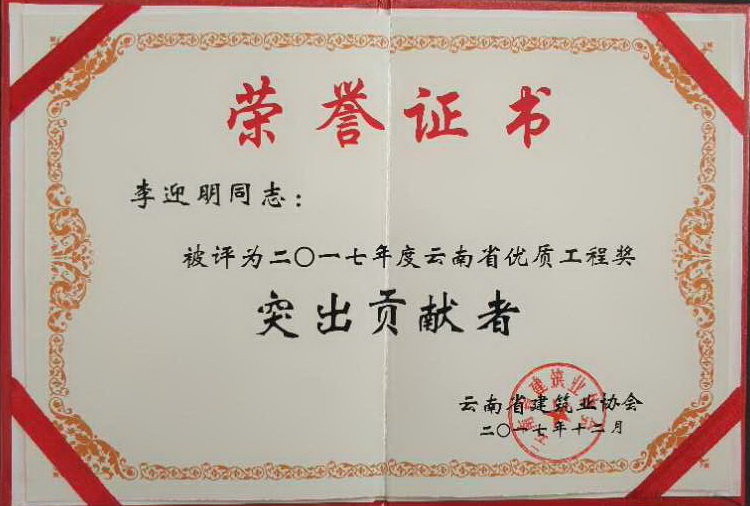 荣誉证书
李迎明同志：
被评为二〇一七年度云南省优质工程奖
突出贡献者
云南省建筑业协会
二〇一七年十二月
云南省建筑业协会